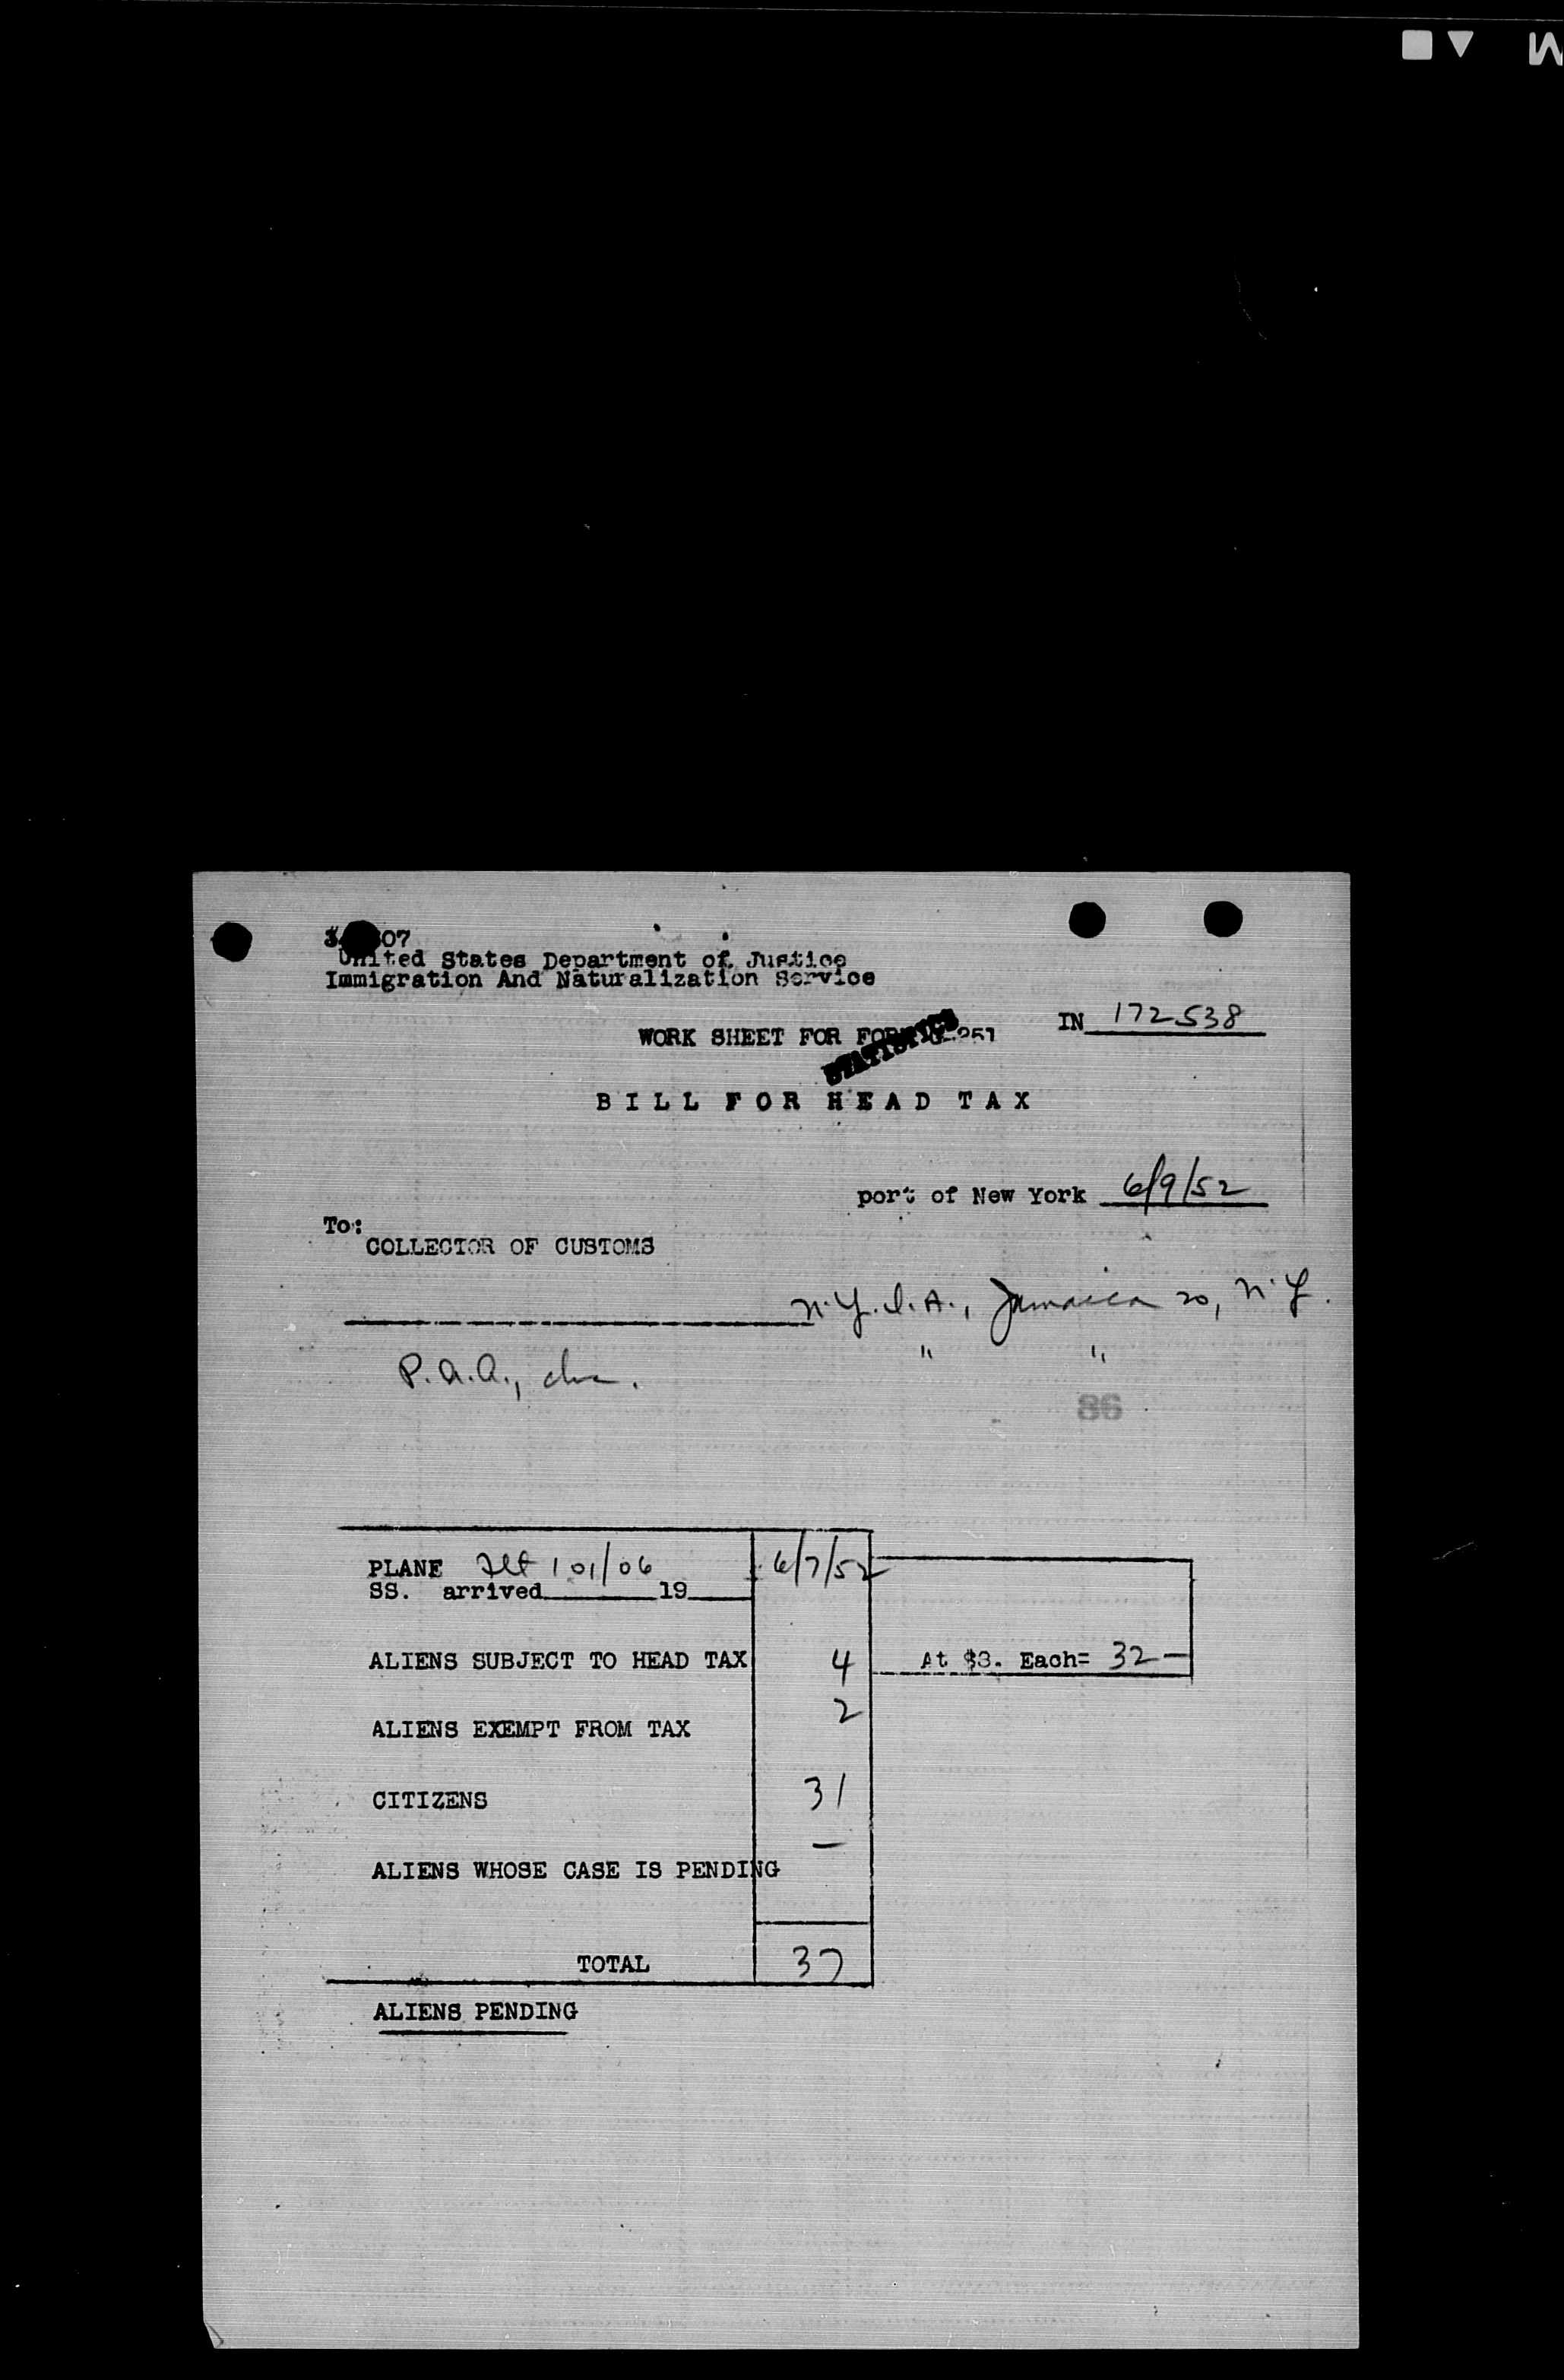 United States Department of Justice
Immigration And Naturalization Service
IN 172538
WORK SHEET FOR FORM 251
STATISTICS
BILL FOR HEAD TAX
port of New York 6/9/52
To:
COLLECTOR OF CUSTOMS
N.Y.I.A., Jamaica 20, N.Y.
P.A.A., " "
86
PLANE Flt 101/06 6/7/52
SS. arrived 19
ALIENS SUBJECT TO HEAD TAX 4 At $8. Each= 32—
ALIENS EXEMPT FROM TAX 2
CITIZENS 31
ALIENS WHOSE CASE IS PENDING —
TOTAL 37
ALIENS PENDING